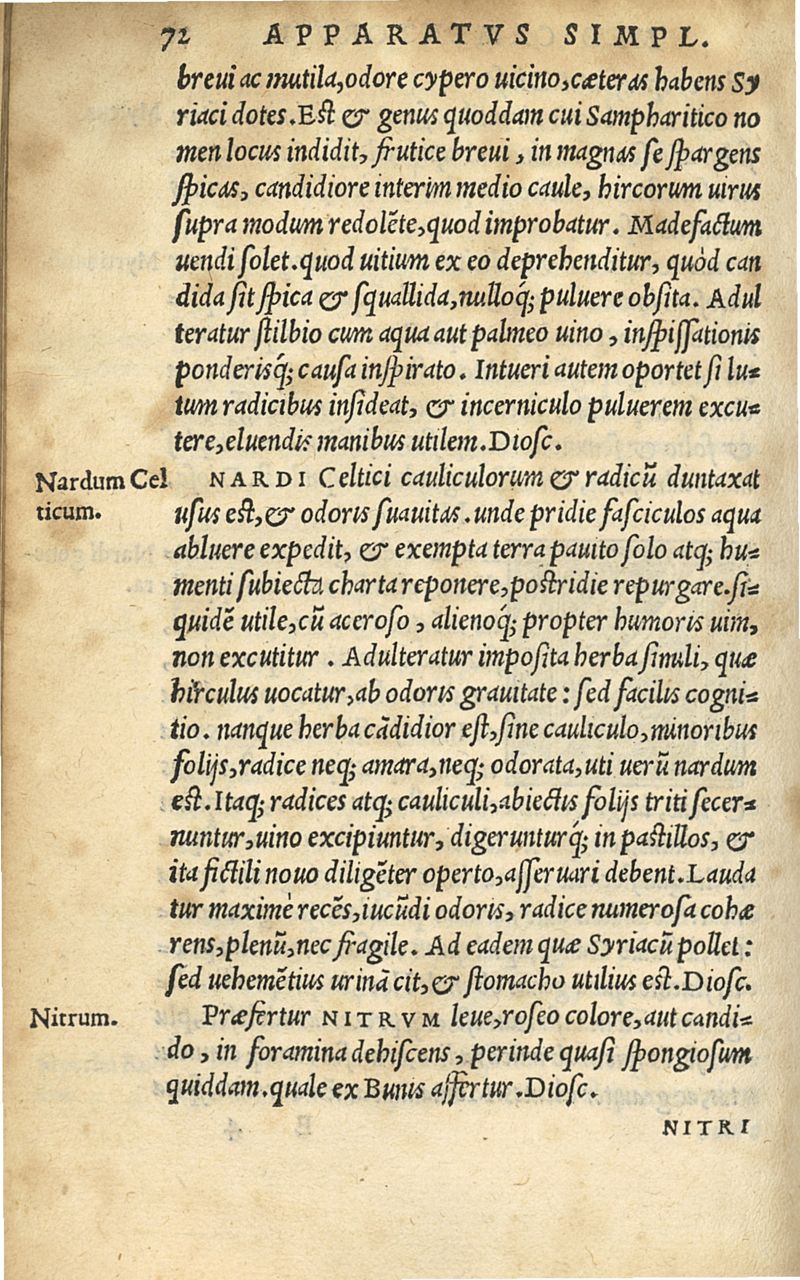 72 APPARATVS SIMPL.
breui ac mutila, odore cypero uicino, cæteras habens Sy
riaci dotes. Est & genus quoddam cui Sampharitico no
men locus indidit, frutice breui, in magnas se spargens
spicas, candidiore interim medio caule, hircorum uirus
supra modum redolẽte, quod improbatur. Madefactum
uendi solet. quod uitium ex eo deprehenditur, quòd can
dida sit spica & squallida, nulloq́; puluere obsita. Adul
teratur stilbio cum aqua aut palmeo uino, inspissationis
ponderisq́; causa inspirato. Intueri autem oportet si lu-
tum radicibus insideat, & incerniculo puluerem excu-
tere, eluendis manibus utilem. Diosc.
Nardum Cel
ticum.
NARDI Celtici cauliculorum & radicũ duntaxat
usus est, & odoris suauitas. unde pridie fasciculos aqua
abluere expedit, & exempta terra pauito solo atq; hu-
menti subiecta charta reponere, postridie repurgare. si-
quidẽ utile, cũ aceroso, alienoq́; propter humoris uim,
non excutitur. Adulteratur imposita herba simili, quæ
hirculus uocatur, ab odoris grauitate: sed facilis cogni-
tio. nanque herba cãdidior est, sine cauliculo, minoribus
folijs, radice neq; amara, neq; odorata, uti uerũ nardum
est. Itaq; radices atq; cauliculi, abiectis folijs triti secer-
nuntur, uino excipiuntur, digerunturq́; in pastillos, &
ita fictili nouo diligẽter operto, asseruari debent. Lauda
tur maximè recẽs, iucũdi odoris, radice numerosa cohæ
rens, plenũ, nec fragile. Ad eadem quæ Syriacũ pollet:
sed uehemẽtius urinã cit, & stomacho utilius est. Diosc.
Nitrum.
Præfertur NITRVM leue, roseo colore, aut candi-
do, in foramina dehiscens, perinde quasi spongiosum
quiddam. quale ex Bunis affertur. Diosc.
NITRI